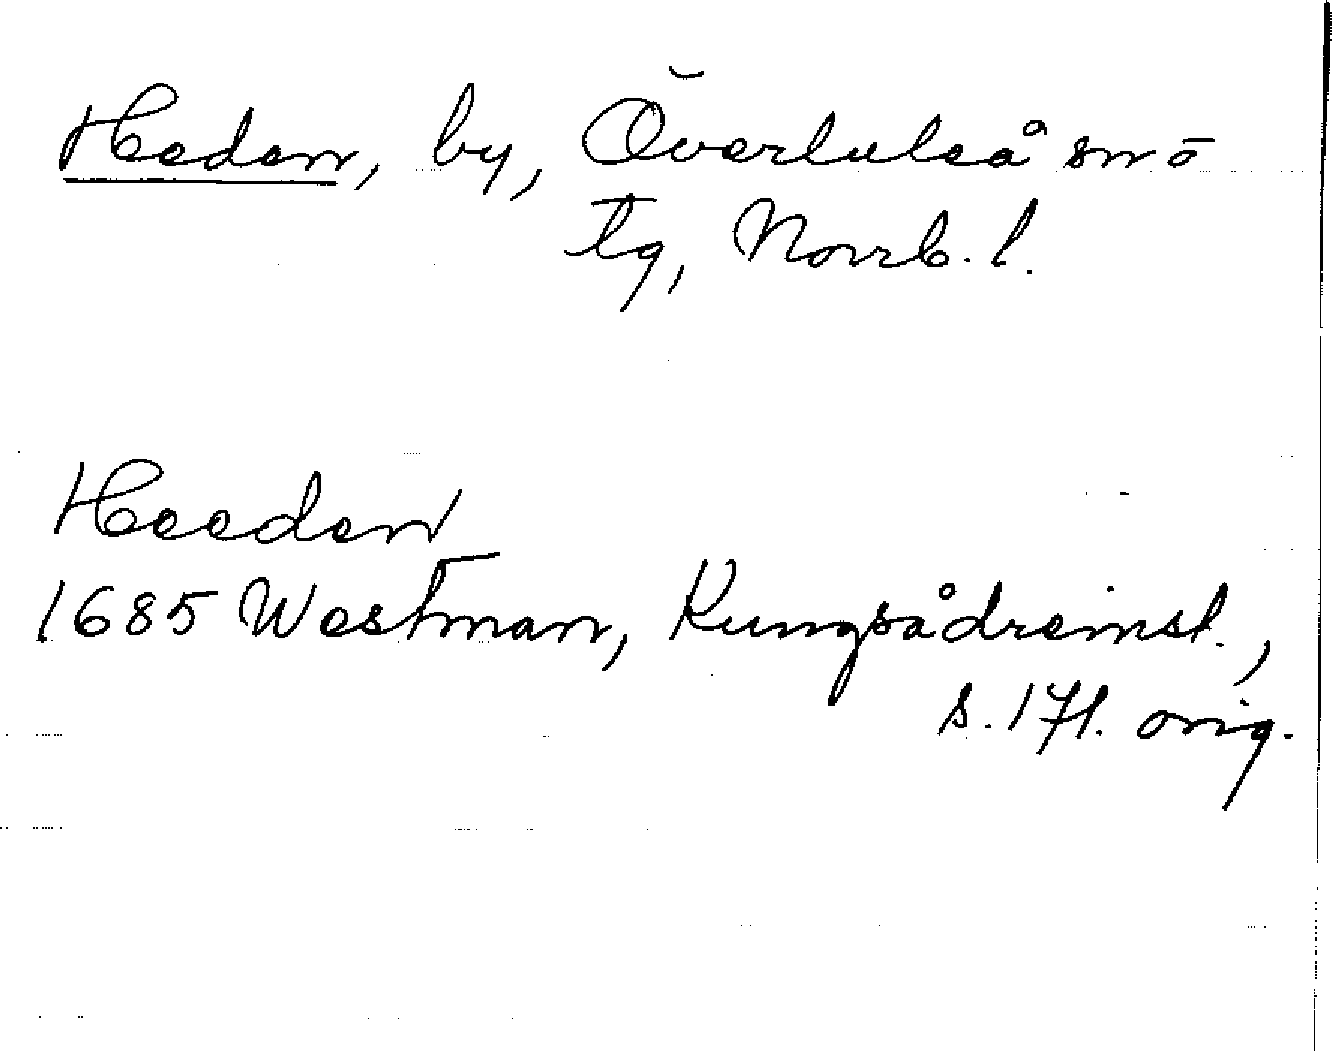 Heden, by, Överluleå sn ō
tg, Norrb. l.
Heeden
1685 Westman, Kungsådreinst.,
s. 17f. orig.